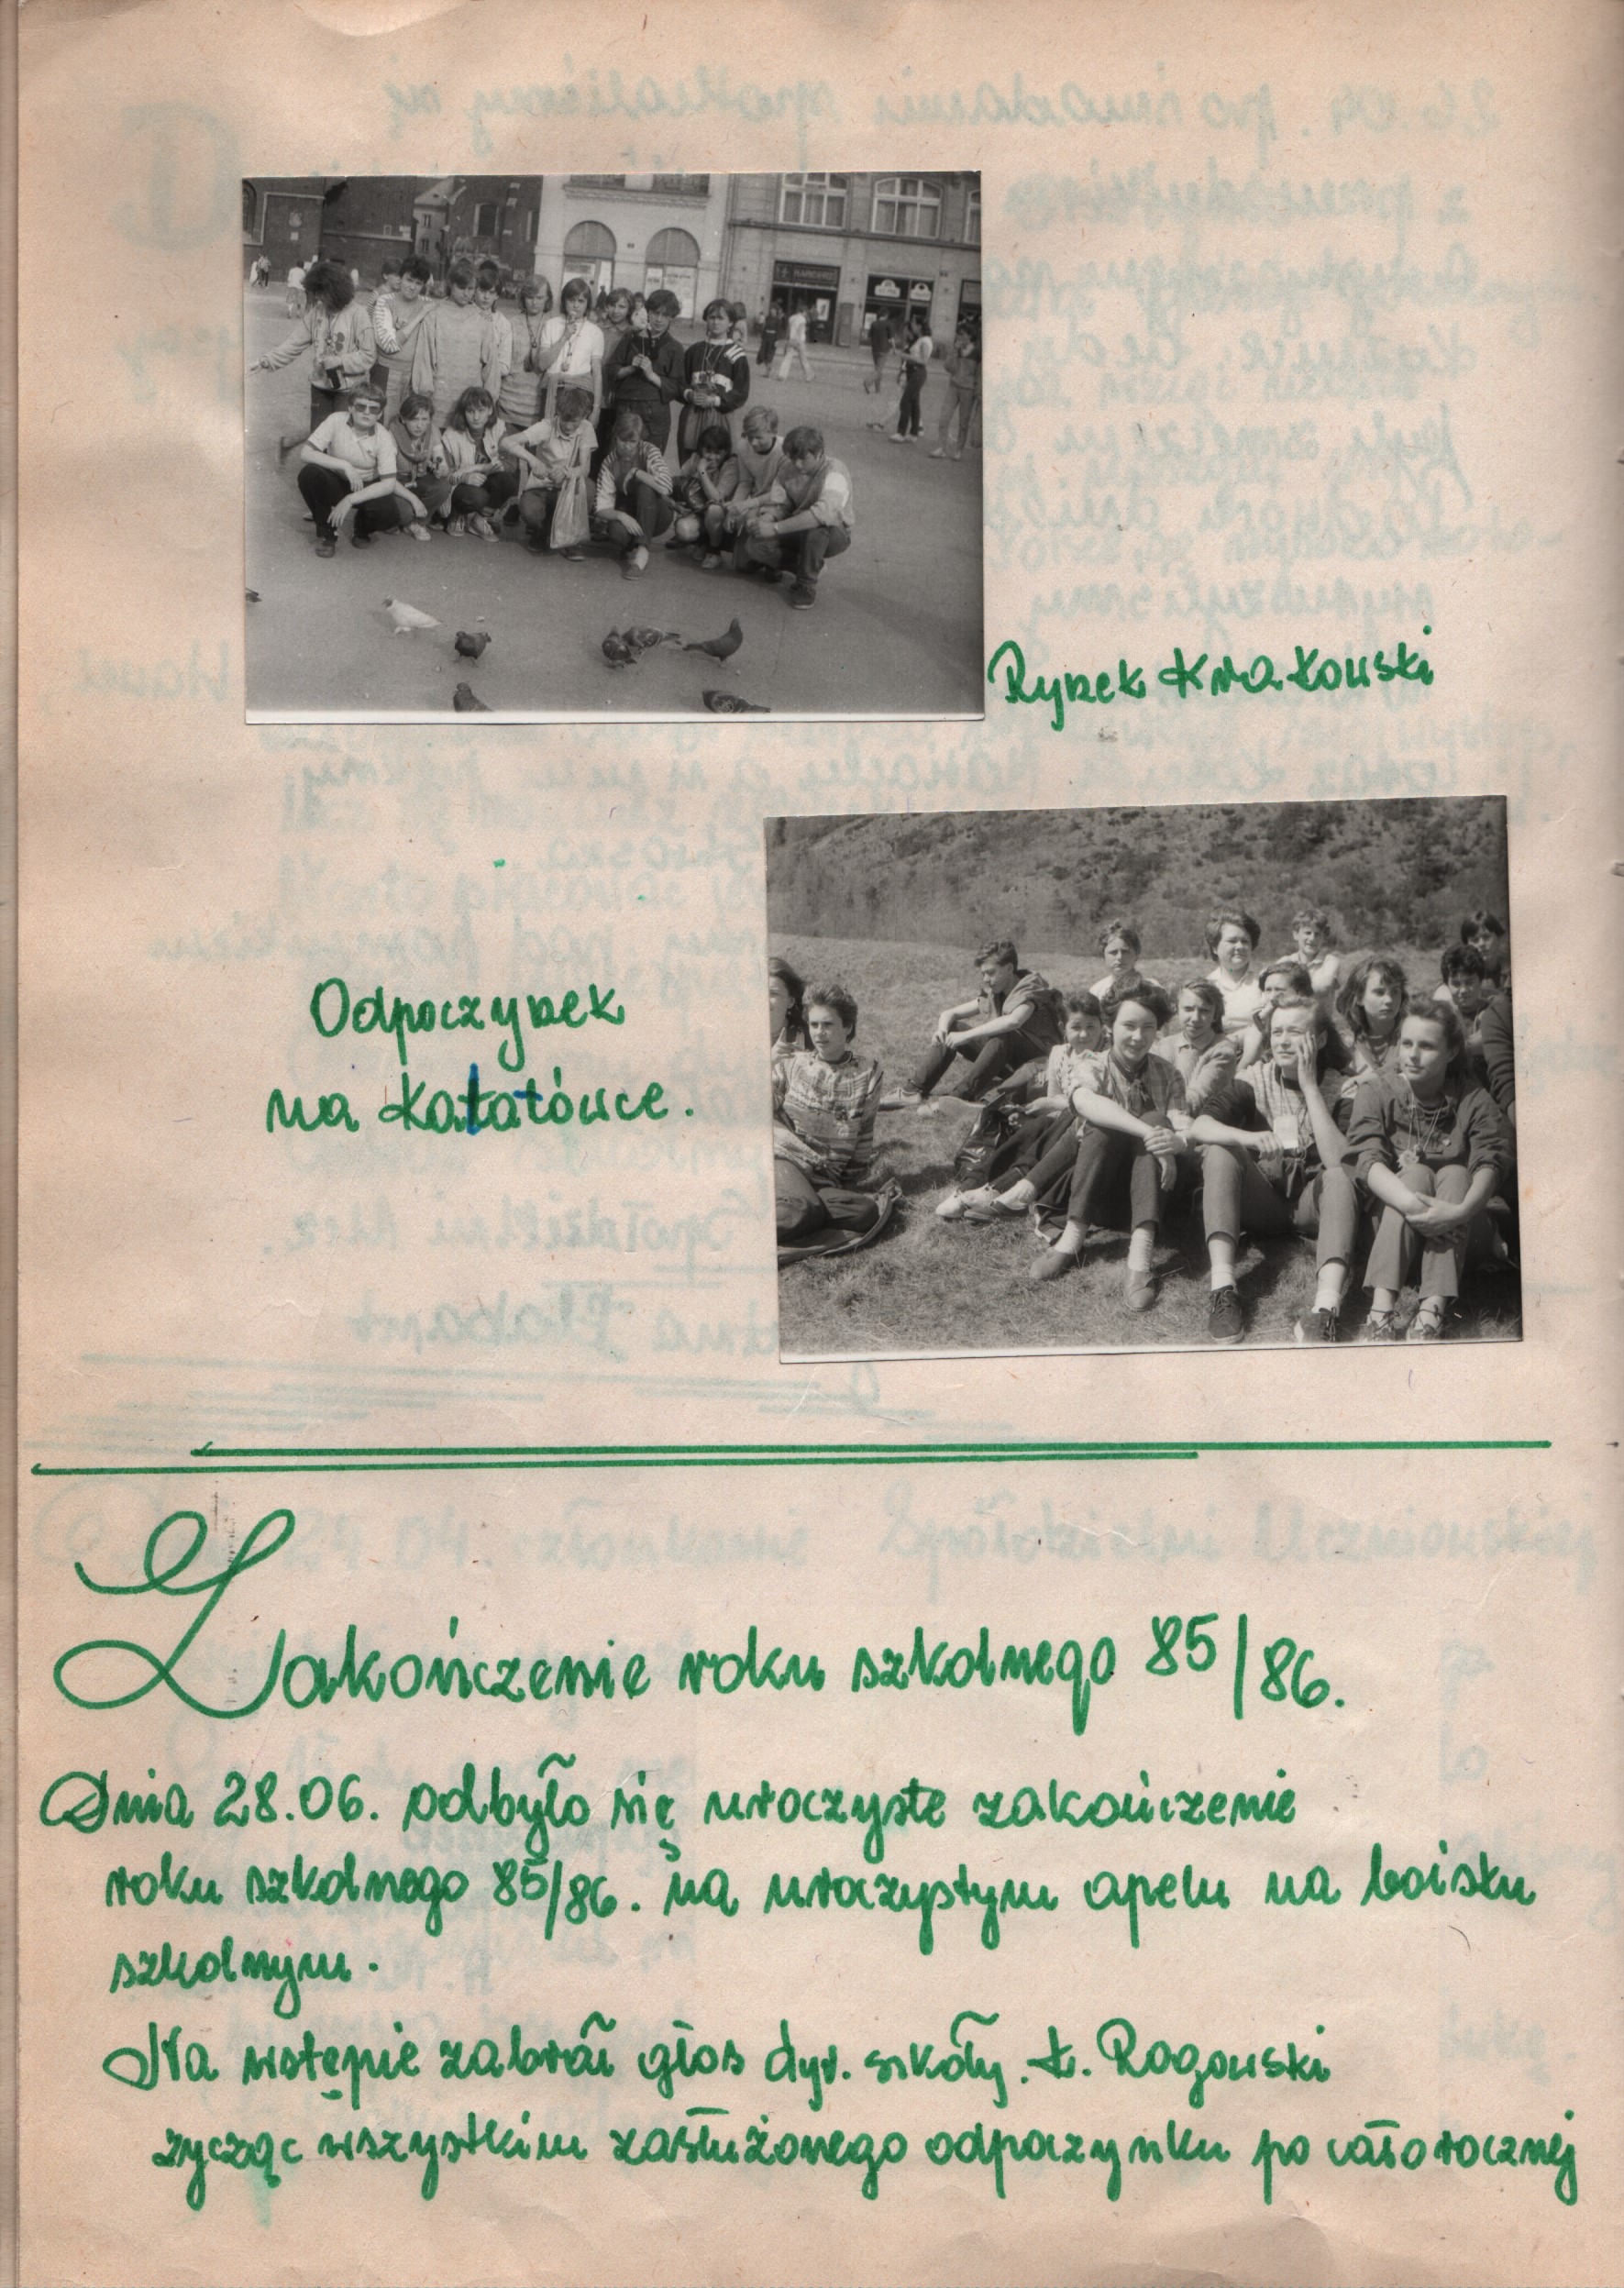 Rynek Krakowski
Odpoczynek
na Kałatówce.
Zakończenie roku szkolnego 85/86.
Dnia 28.06. odbyło się uroczyste zakończenie
roku szkolnego 85/86. na uroczystym apelu na boisku
szkolnym.
Na wstępie zabrał głos dyr. szkoły. Ł. Rogowski
życząc wszystkim zasłużonego odpoczynku po całorocznej